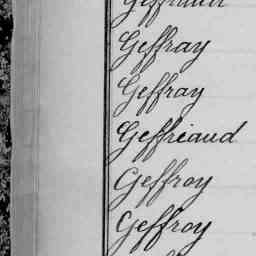 Geffray
Geffray
Geffriaud
Geffroy
Geffroy